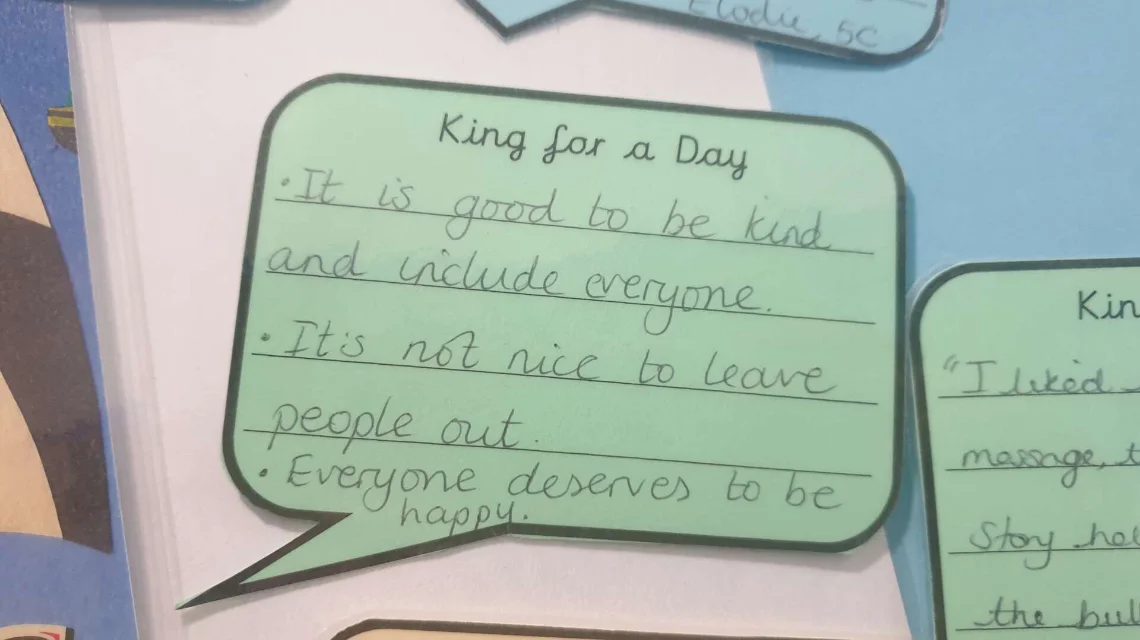 Elodie, 5C
King for a Day
• It is good to be kind
and include everyone.
• It's not nice to leave
people out.
• Everyone deserves to be
happy.
"I liked
massage,
Story
the